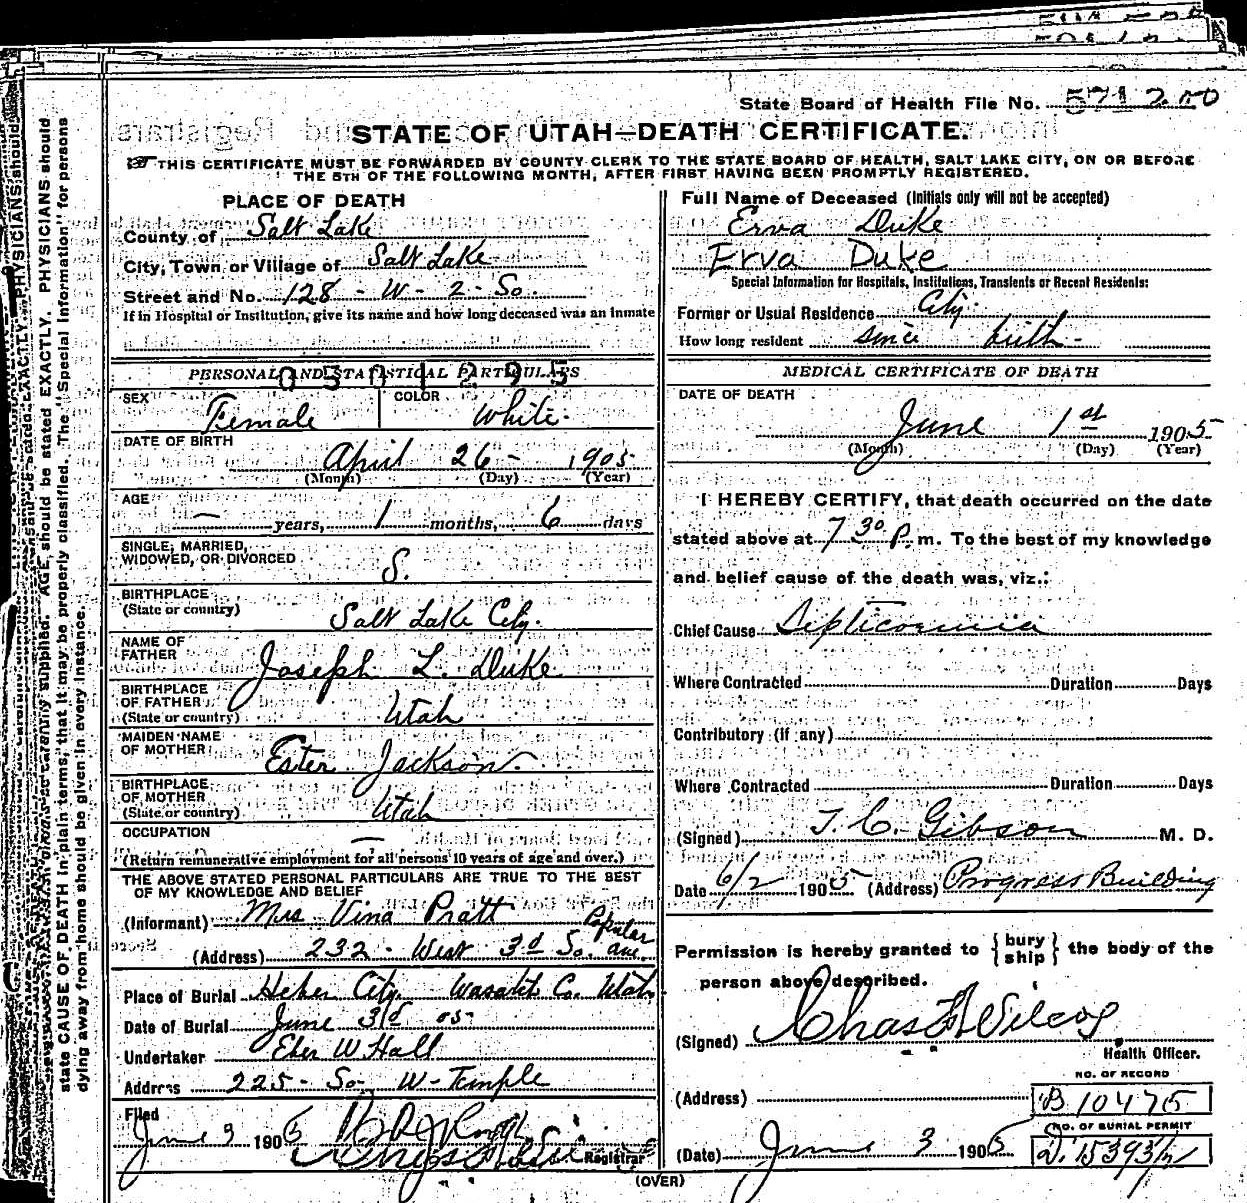 State Board of Health File No. 571 2.00
STATE OF UTAH—DEATH CERTIFICATE.
THIS CERTIFICATE MUST BE FORWARDED BY COUNTY CLERK TO THE STATE BOARD OF HEALTH, SALT LAKE CITY, ON OR BEFORE
THE 5TH OF THE FOLLOWING MONTH, AFTER FIRST HAVING BEEN PROMPTLY REGISTERED.
PLACE OF DEATH
County of Salt Lake
City, Town or Village of Salt Lake
Street and No. 128 - W - 2 - So.
If in Hospital or Institution, give its name and how long deceased was an inmate
Full Name of Deceased (Initials only will not be accepted)
Erva Duke
Erva Duke
Special Information for Hospitals, Institutions, Transients or Recent Residents:
Former or Usual Residence City.
How long resident since birth -
PERSONAL AND STATISTICAL PARTICULARS
0501295
SEX Female
COLOR White.
DATE OF BIRTH
April 26 - 1905
(Month) (Day) (Year)
AGE
— years, 1 months, 6 days
SINGLE, MARRIED,
WIDOWED, OR DIVORCED S.
BIRTHPLACE
(State or country) Salt Lake City.
NAME OF
FATHER Joseph L. Duke
BIRTHPLACE
OF FATHER
(State or country) Utah
MAIDEN NAME
OF MOTHER Ester Jackson.
BIRTHPLACE
OF MOTHER
(State or country) Utah
OCCUPATION —
(Return remunerative employment for all persons 10 years of age and over.)
THE ABOVE STATED PERSONAL PARTICULARS ARE TRUE TO THE BEST
OF MY KNOWLEDGE AND BELIEF
(Informant) Mrs Vina Pratt
(Address) 232 - West 3d So. Popular ave.
Place of Burial Heber City. Wasatch Co. Utah
Date of Burial June 3rd 05
Undertaker Eber W Hall
Address 225 - So - W - Temple
Filed
June 3 1905
Registrar
MEDICAL CERTIFICATE OF DEATH
DATE OF DEATH
June 1st 1905
(Month) (Day) (Year)
I HEREBY CERTIFY, that death occurred on the date
stated above at 7 30 P. m. To the best of my knowledge
and belief cause of the death was, viz.:
Chief Cause Septicaemia
Where Contracted Duration Days
Contributory (if any)
Where Contracted Duration Days
(Signed) T. C. Gibson M. D.
Date 6/2 1905 (Address) Progress Building
Permission is hereby granted to {bury ship} the body of the
person above described.
(Signed) Chas F Wilcox
Health Officer.
NO. OF RECORD
(Address) B 10475
NO. OF BURIAL PERMIT
(Date) June 3 1905 D. 15393½
(OVER)
state CAUSE OF DEATH in plain terms, that it may be properly classified. The "Special Information" for persons
dying away from home should be given in every instance.